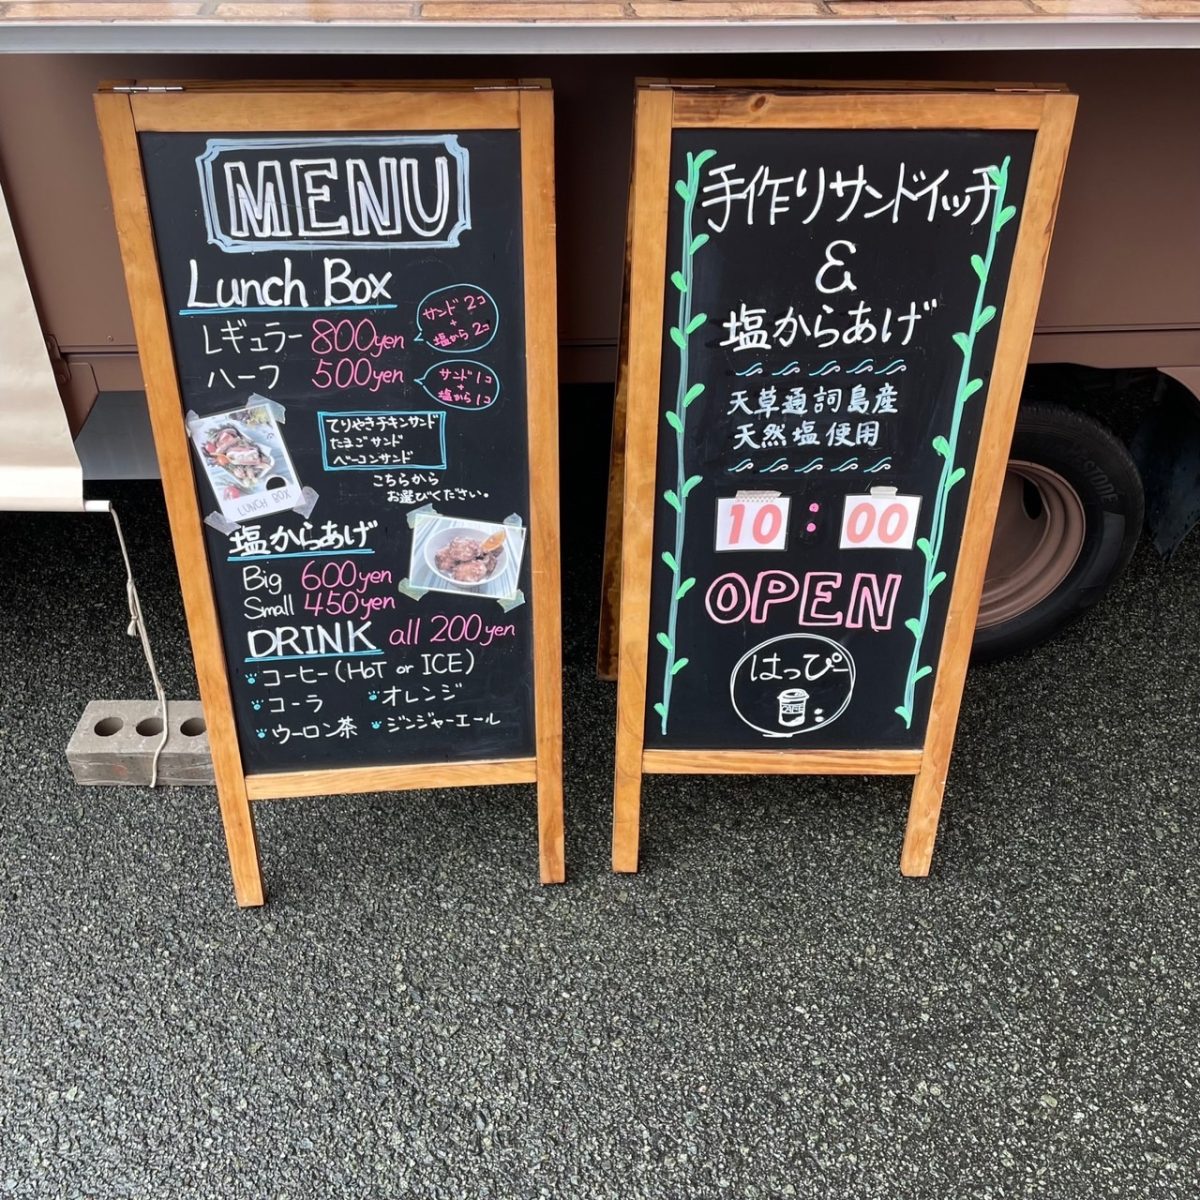 MENU
Lunch Box
レギュラー 800yen
サンド 2コ
+
塩から 2コ
ハーフ 500yen
サンド 1コ
+
塩から 1コ
てりやきチキンサンド
たまごサンド
ベーコンサンド
こちらから
お選びください。
LUNCH BOX
塩からあげ
Big 600yen
Small 450yen
DRINK all 200yen
コーヒー(HOT or ICE)
コーラ オレンジ
ウーロン茶 ジンジャーエール
手作りサンドイッチ
&
塩からあげ
天草通詞島産
天然塩使用
10:00
OPEN
はっぴー
CAFE